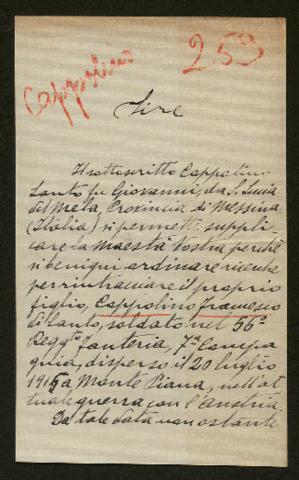 Cappolino
253
Sire
Il sottoscritto Cappolino
Santo fu Giovanni, da S. Lucia
del Mela, Provincia di Messina
(Italia) si permette suppli
care la maestà Vostra perchè
si benigni ordinare ricerche
per rintracciare il proprio
figlio, Cappolino Francesco
di Santo, soldato nel 56º
Regg.to Fanteria, 7ª Compa
gnia, disperso il 20 luglio
1915 a Monte Piana, nell'at
tuale guerra con l'Austria.
Da tale data non ostante